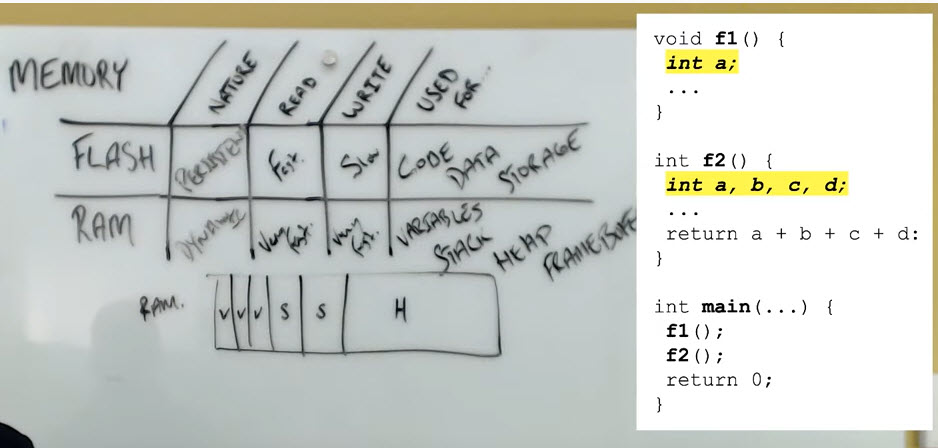 MEMORY
NATURE
READ
WRITE
USED FOR...
FLASH
PERSISTENT
Fast.
Slow
CODE DATA STORAGE
RAM
DYNAMIC
Very fast.
Very fast.
VARIABLES STACK HEAP
RAM.
V V V S S H
void f1() {
int a;
...
}
int f2() {
int a, b, c, d;
...
return a + b + c + d:
}
int main(...) {
f1();
f2();
return 0;
}